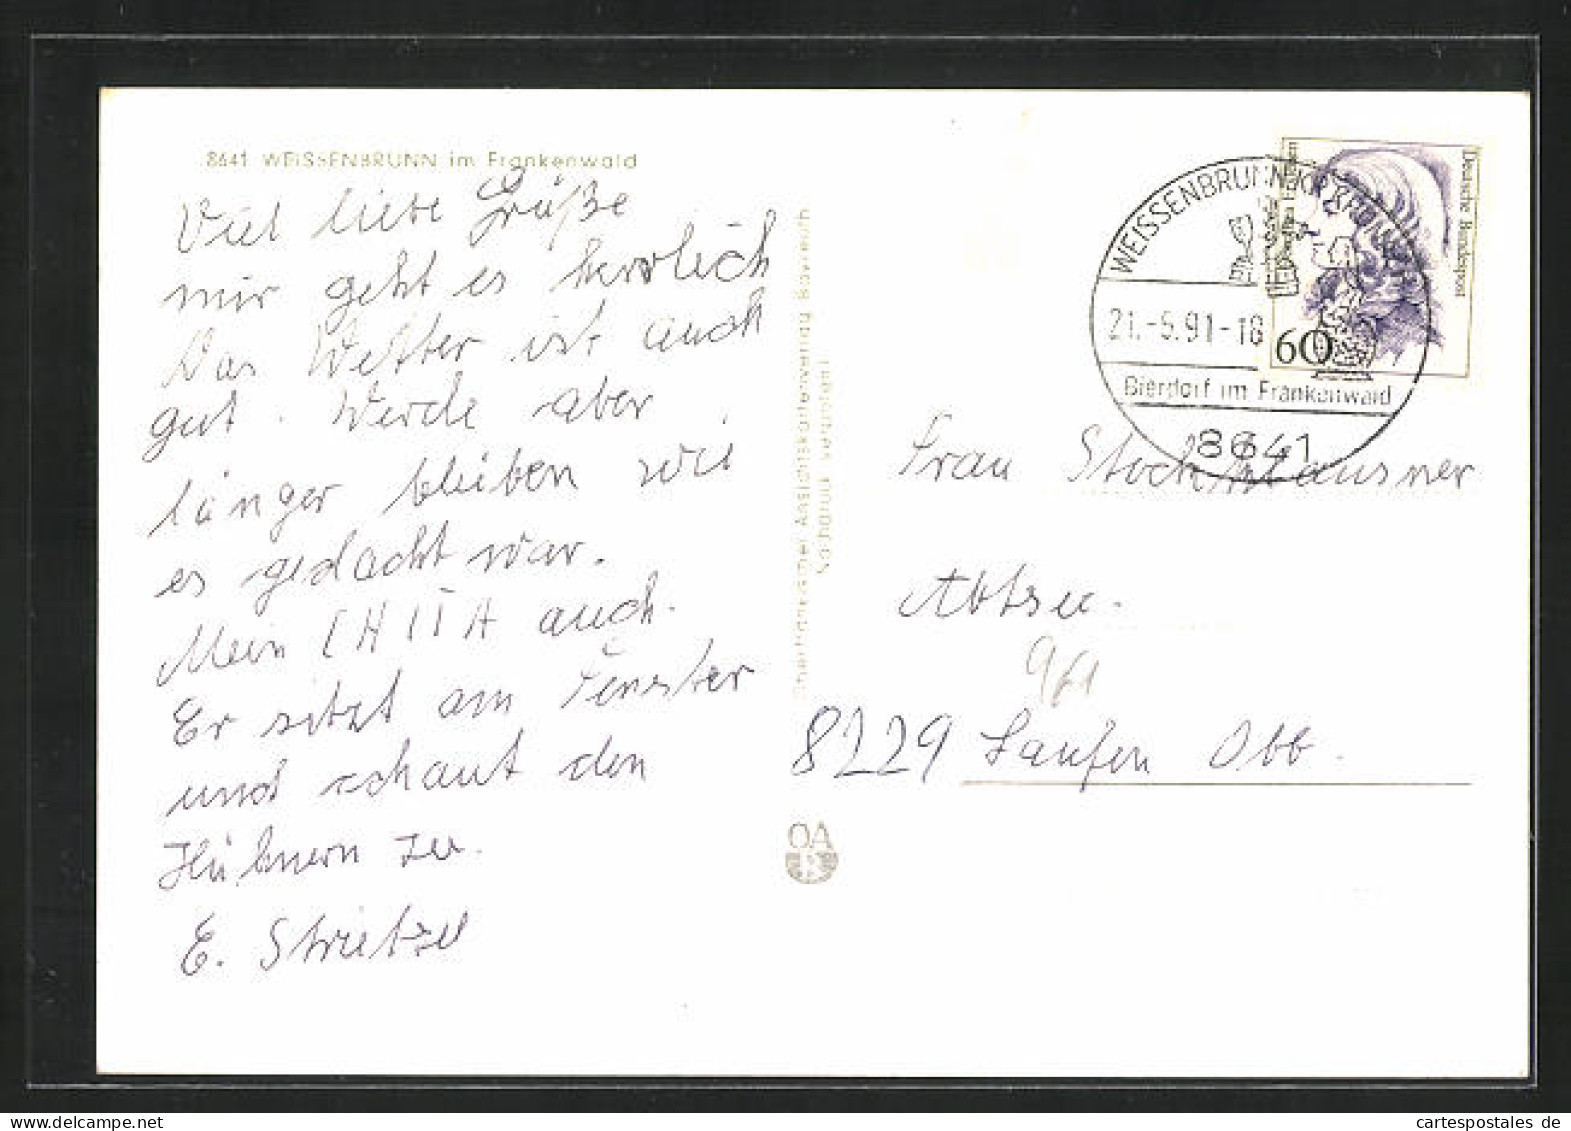 8641 WEISSENBRUNN im Frankenwald
Viel liebe Grüße
mir geht es herrlich
Das Wetter ist auch
gut. Werde aber
länger bleiben wie
es gedacht war.
Mein auch.
Er sitzt am Fenster
und schaut den
Hühnern zu.
E. Strietzel
Oberfränkischer Ansichtskartenverlag Bayreuth
Nachdruck verboten
OA
B
WEISSENBRUNN KR KRONACH
21.-5.91-18
Bierdorf im Frankenwald
8641
Deutsche Bundespost
60
Frau Stockhausner
Abtsee.
961
8229 Laufen Obb.
cartespostales de